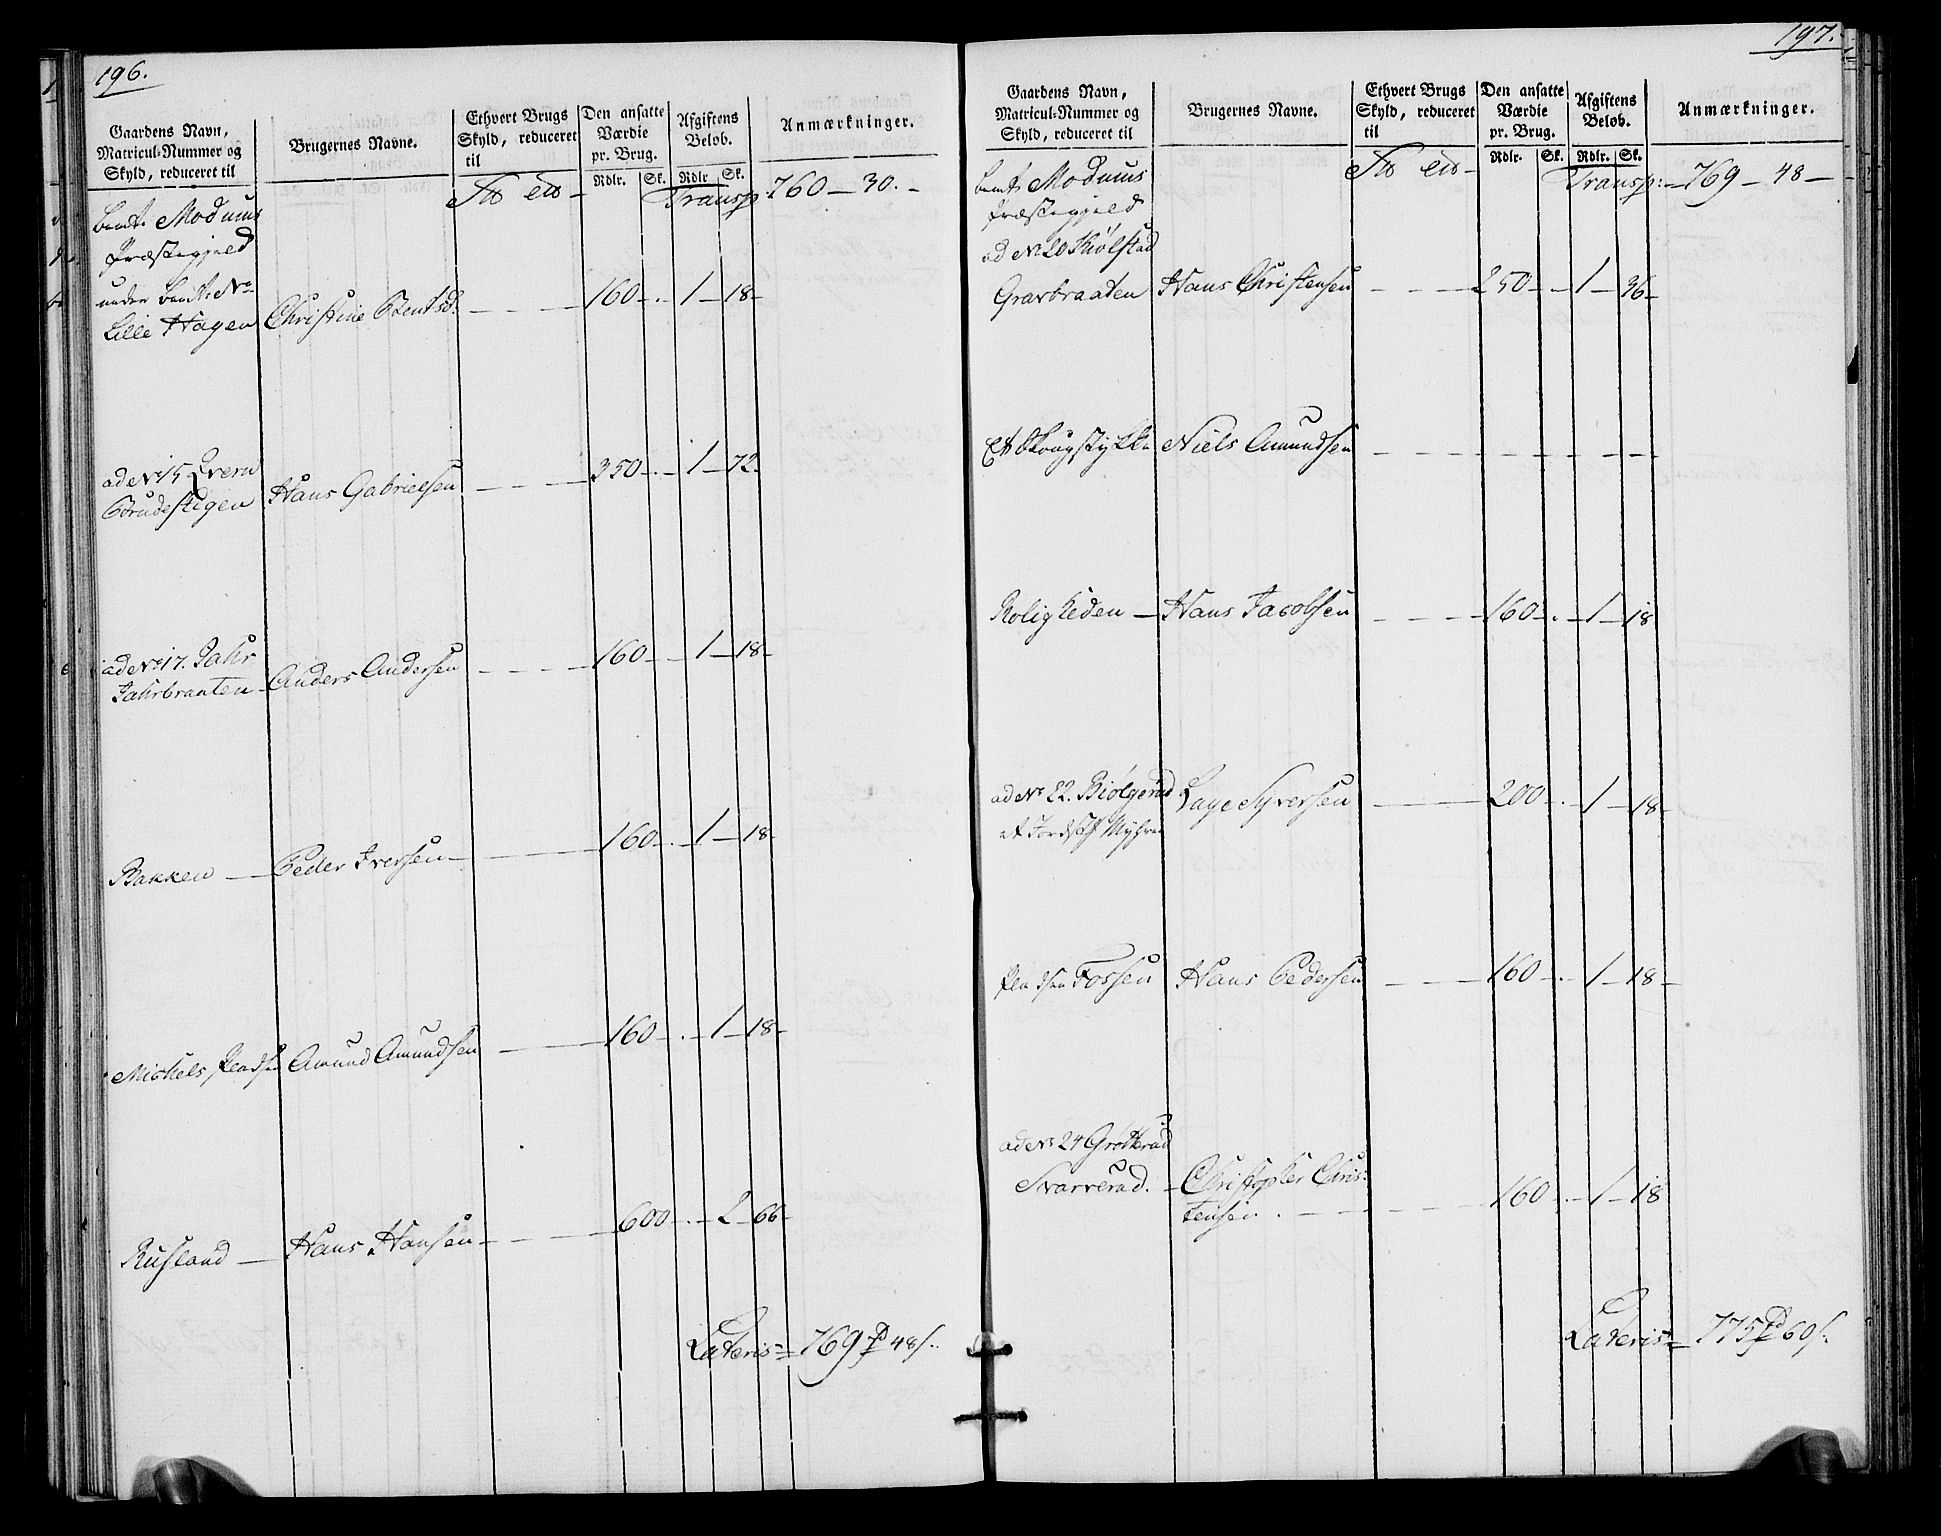 196.
Gaardens Navn,
Matricul-Nummer og
Skyld, reduceret til
Brugernes Navne.
Ethvert Brugs
Skyld, reduceret
til
Den ansatte
Værdie
pr. Brug.
Rdlr. Sk.
Afgiftens
Beløb.
Rdlr Sk.
Anmærkninger.
Transp: 760 — 30. —
bemte Modums
Præstegjeld
under bemte No
Lille Hagen Christine Bentsd: 160 — . — 1 — 18 —
ad No 15 Qvern
Brudestigen Hans Gabrielsen 350 — . — 1 — 72 —
ad No 17. Jahr
Jahrbraaten — Anders Andersen 160 — . — 1 — 18 —
Bakken — Peder Iversen — 160 — . — 1 — 18 —
Michels Amund Amundsen 160 — . — 1 — 18 —
Rusland — Hans Hansen — 600 — . — 2 — 66 —
Lateris = 769 48 s.
197.
Gaardens Navn,
Matricul-Nummer og
Skyld, reduceret til
Brugernes Navne.
Ethvert Brugs
Skyld, reduceret
til
Den ansatte
Værdie
pr. Brug.
Rdlr. Sk.
Afgiftens
Beløb.
Rdlr. Sk.
Anmærkninger.
Transp: — 769 — 48 —
bemte Modums
Præstegjeld
ad No 20 Kiølstad
Gravbraaten Hans Christensen 250 — . — 1 — 36 —
Et Skougstykke Niels Amundsen
Roligheden — Hans Jacobsen 160 — . — 1 — 18
ad No 22. Biølgerud Lage Syversen 200 — . — 1 — 18 —
et Myhren
Fossen Hans Pedersen 160 — . — 1 — 18 —
ad No 24 Grøtterud
Svarverud. — Christopher Chris:
tensen . 160 — . — 1 — 18
Lateris = 775 60 s.